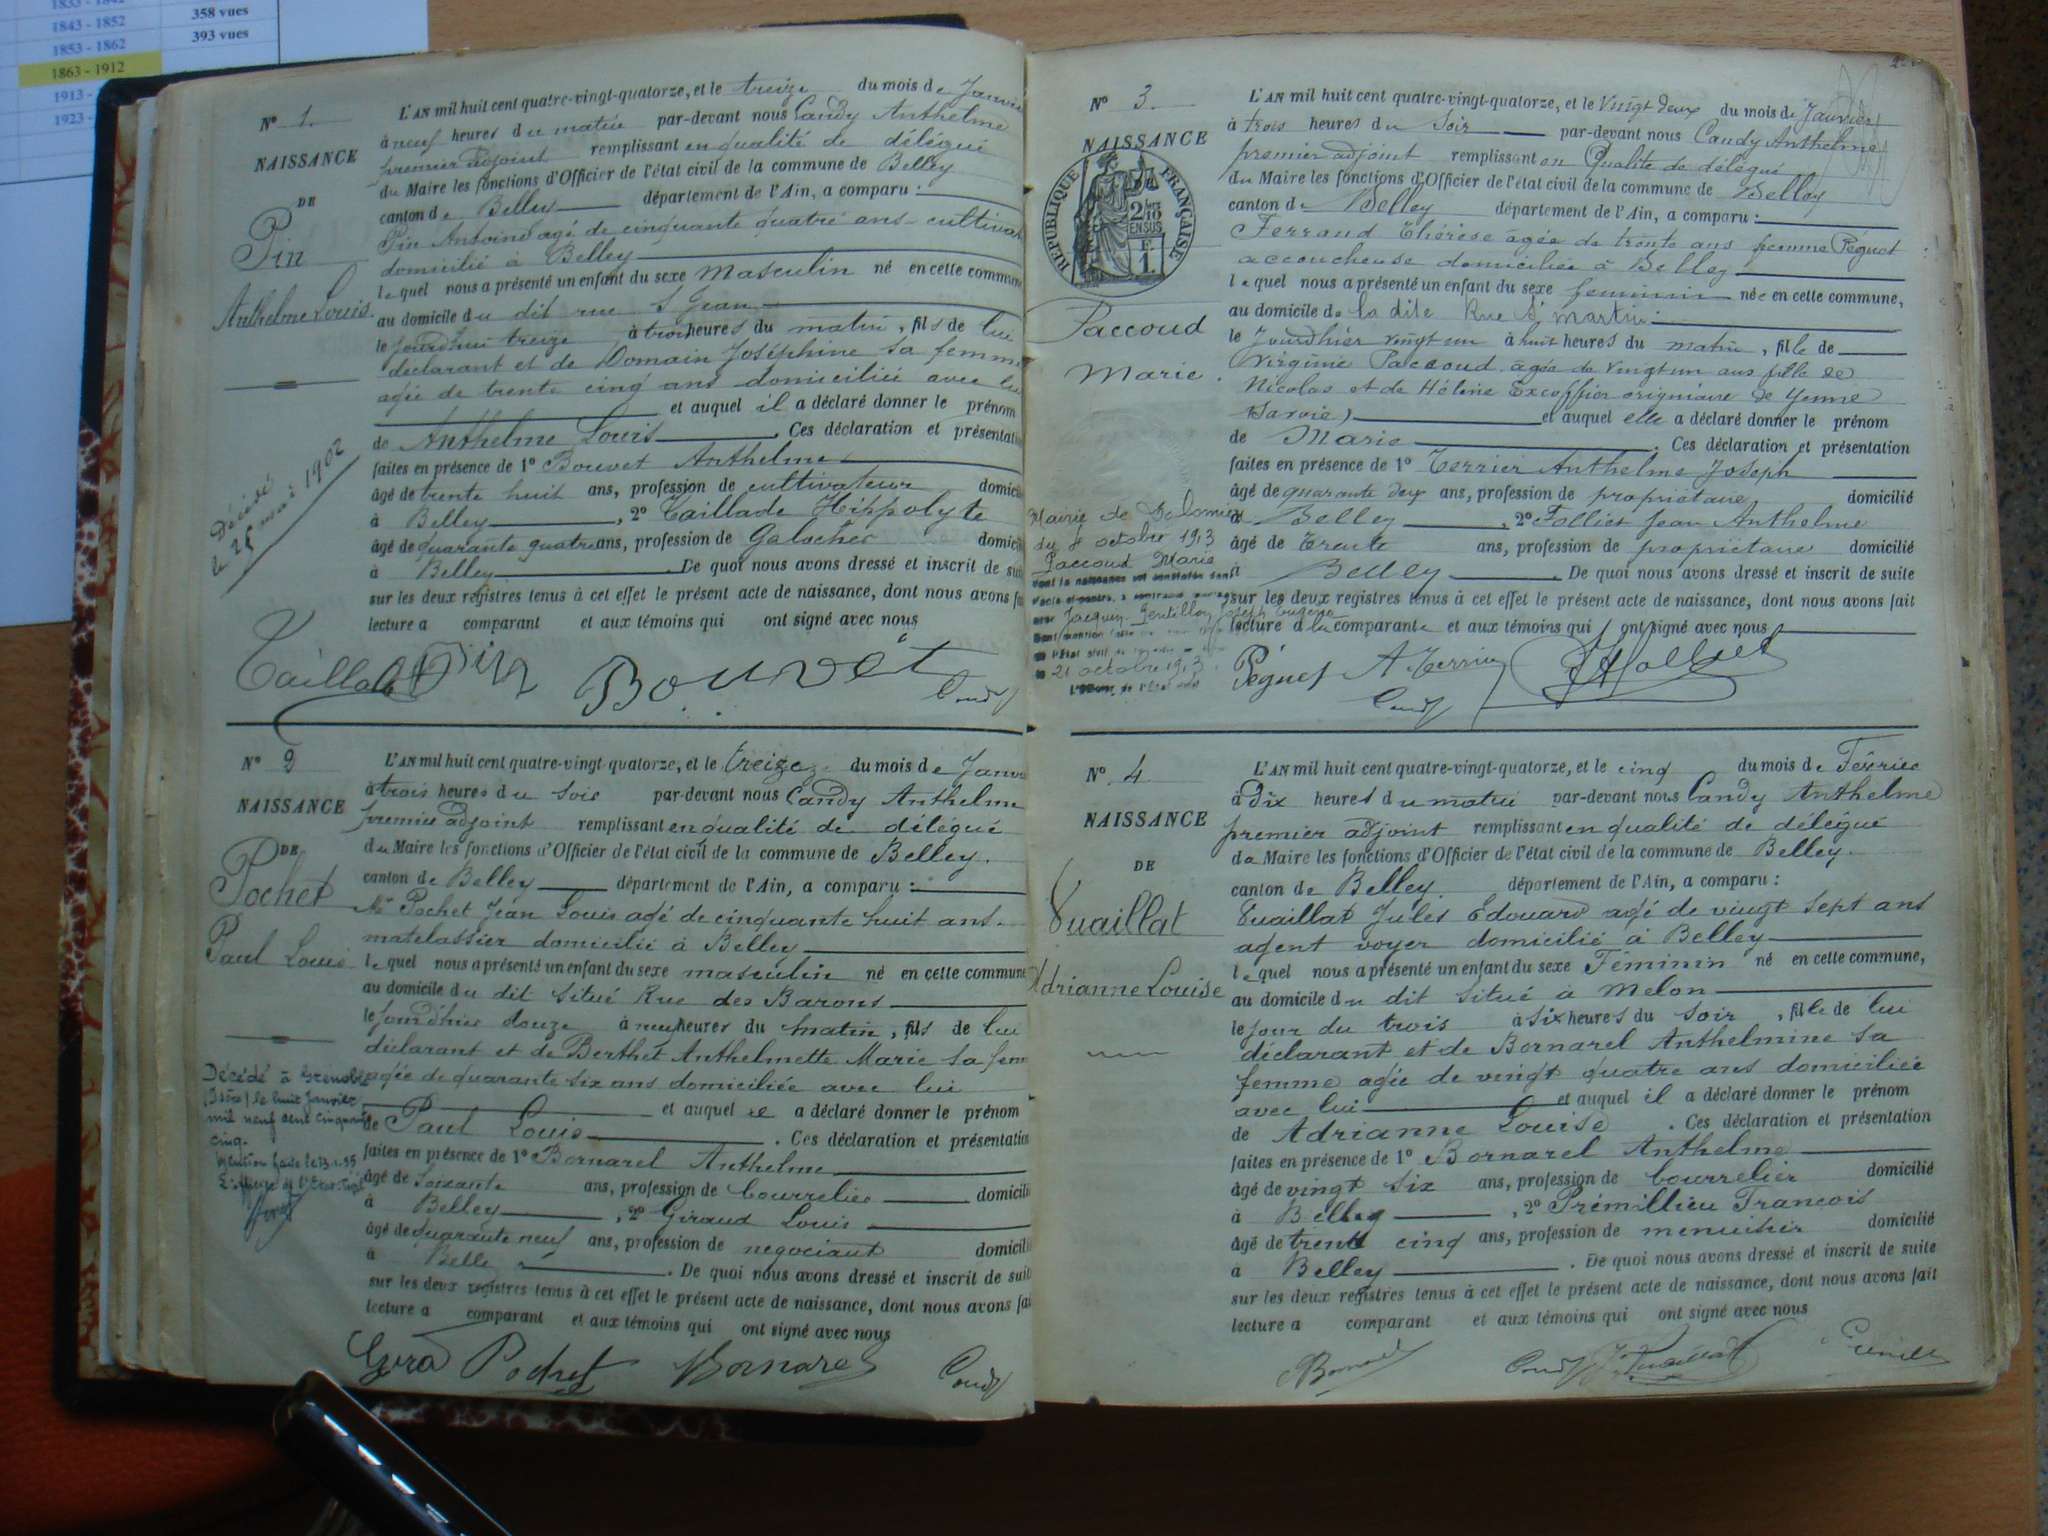 1833 - 1842
1843 - 1852 358 vues
1853 - 1862 393 vues
1863 - 1912
1913 -
1923 -
N° 1.
NAISSANCE
DE
Pin
Anthelme Louis.
Décédé
le 25 mai 1902
L'AN mil huit cent quatre-vingt-quatorze, et le treize du mois de Janvier
à neuf heures du matin par-devant nous Candy Anthelme
premier adjoint remplissant en qualité de délégué
du Maire les fonctions d'Officier de l'état civil de la commune de Belley
canton de Belley département de l'Ain, a comparu :
Pin Antoine agé de cinquante quatre ans cultivat
domicilié à Belley
lequel nous a présenté un enfant du sexe masculin né en cette commune
au domicile du dit rue St Jean
le jourdhui treize à trois heures du matin, fils de lui
déclarant et de Domain Joséphine sa femme
agée de trente cinq ans domiciliée avec lui
et auquel il a déclaré donner le prénom
de Anthelme Louis. Ces déclaration et présentation
faites en présence de 1° Bouvet Anthelme
âgé de trente huit ans, profession de cultivateur domicilié
à Belley, 2° Taillade Hippolyte
âgé de quarante quatre ans, profession de Galocher domicilié
à Belley. De quoi nous avons dressé et inscrit de suite
sur les deux registres tenus à cet effet le présent acte de naissance, dont nous avons fait
lecture a comparant et aux témoins qui ont signé avec nous
Taillade Pin Bouvet Candy
N° 2
NAISSANCE
DE
Pochet
Paul Louis
Décédé à Grenoble
(Isère) le huit Janvier
mil neuf cent cinquante
cinq.
Mention faite le 13.1.55
L'officier de l'Etat-Civil
L'AN mil huit cent quatre-vingt-quatorze, et le treize du mois de Janvier
à trois heures du soir par-devant nous Candy Anthelme
premier adjoint remplissant en qualité de délégué
du Maire les fonctions d'Officier de l'état civil de la commune de Belley.
canton de Belley département de l'Ain, a comparu :
Mr Pochet Jean Louis agé de cinquante huit ans.
matelassier domicilié à Belley
lequel nous a présenté un enfant du sexe masculin né en cette commune
au domicile du dit situé Rue des Barons
le jourdhier douze à neuf heures du matin, fils de lui
déclarant et de Berthet Anthelmette Marie sa fem
agée de quarante six ans domiciliée avec lui
et auquel il a déclaré donner le prénom
de Paul Louis. Ces déclaration et présentation
faites en présence de 1° Bornarel Anthelme
âgé de soixante ans, profession de bourrelier domicilié
à Belley, 2° Giraud Louis
âgé de quarante neuf ans, profession de négociant domicilié
à Belle. De quoi nous avons dressé et inscrit de suite
sur les deux registres tenus à cet effet le présent acte de naissance, dont nous avons fait
lecture a comparant et aux témoins qui ont signé avec nous
Gira Pochet Bornarel Candy
N° 3.
NAISSANCE
RÉPUBLIQUE FRANÇAISE
2/10
EN SUS
F.
1.
Paccoud
Marie.
Mairie de Dolomieu
du 8 octobre 1913
Paccoud Marie
dont la naissance est constatée dans
l'acte ci-contre, a contracté mariage
avec Jacquin-Gentillon Joseph Eugène
21 octobre 1913
L'Officier de l'Etat civil
L'AN mil huit cent quatre-vingt-quatorze, et le vingt deux du mois de Janvier
à trois heures du soir par-devant nous Candy Anthelme
premier adjoint remplissant en Qualité de délégué
du Maire les fonctions d'Officier de l'état civil de la commune de Belley
canton de Belley département de l'Ain, a comparu :
Ferrand Thérèse âgée de trente ans femme Péguet
accoucheuse domiciliée à Belley
lequel nous a présenté un enfant du sexe feminin née en cette commune,
au domicile de la dite Rue St martin
le Jourdhier vingt un à huit heures du matin, fille de
Virginie Paccoud âgée de vingt un ans fille de
Nicolas et de Hélène Excoffier originaire de Yenne
Savoie) et auquel elle a déclaré donner le prénom
de Marie. Ces déclaration et présentation
faites en présence de 1° Terrier Anthelme Joseph
âgé de quarante deux ans, profession de propriétaire domicilié
à Belley, 2° Folliet Jean Anthelme
âgé de Trente ans, profession de propriétaire domicilié
à Belley. De quoi nous avons dressé et inscrit de suite
sur les deux registres tenus à cet effet le présent acte de naissance, dont nous avons fait
lecture a la comparante et aux témoins qui ont signé avec nous
Péguet A Terrier JAFolliet
Candy
N° 4
NAISSANCE
DE
Vuaillat
Adrianne Louise
L'AN mil huit cent quatre-vingt-quatorze, et le cinq du mois de Février
à Dix heures du matin par-devant nous Candy Anthelme
premier adjoint remplissant en qualité de délégué
du Maire les fonctions d'Officier de l'état civil de la commune de Belley.
canton de Belley département de l'Ain, a comparu :
Vuaillat Jules Edouard agé de vingt sept ans
agent voyer domicilié à Belley
lequel nous a présenté un enfant du sexe Féminin né en cette commune,
au domicile du dit situé à Melon
le jour du trois à six heures du soir, fille de lui
déclarant et de Bornarel Anthelmine sa
femme agée de vingt quatre ans domiciliée
avec lui et auquel il a déclaré donner le prénom
de Adrianne Louise. Ces déclaration et présentation
faites en présence de 1° Bornarel Anthelme
âgé de vingt six ans, profession de bourrelier domicilié
à Belley, 2° Prémillieu Francois
âgé de trente cinq ans, profession de menuisier domicilié
à Belley. De quoi nous avons dressé et inscrit de suite
sur les deux registres tenus à cet effet le présent acte de naissance, dont nous avons fait
lecture a comparant et aux témoins qui ont signé avec nous
Bornarel Candy Vuaillat